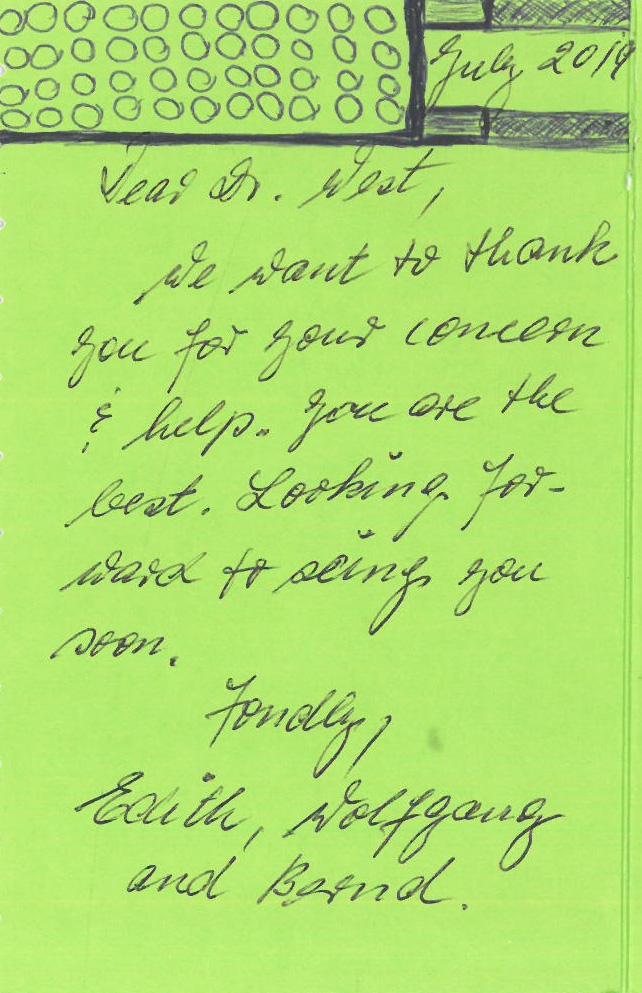 July 2019
Dear Dr. West,
We want to thank
you for your concern
& help. You are the
best. Looking for-
ward to seing you
soon.
Fondly,
Edith, Wolfgang
and Bernd.